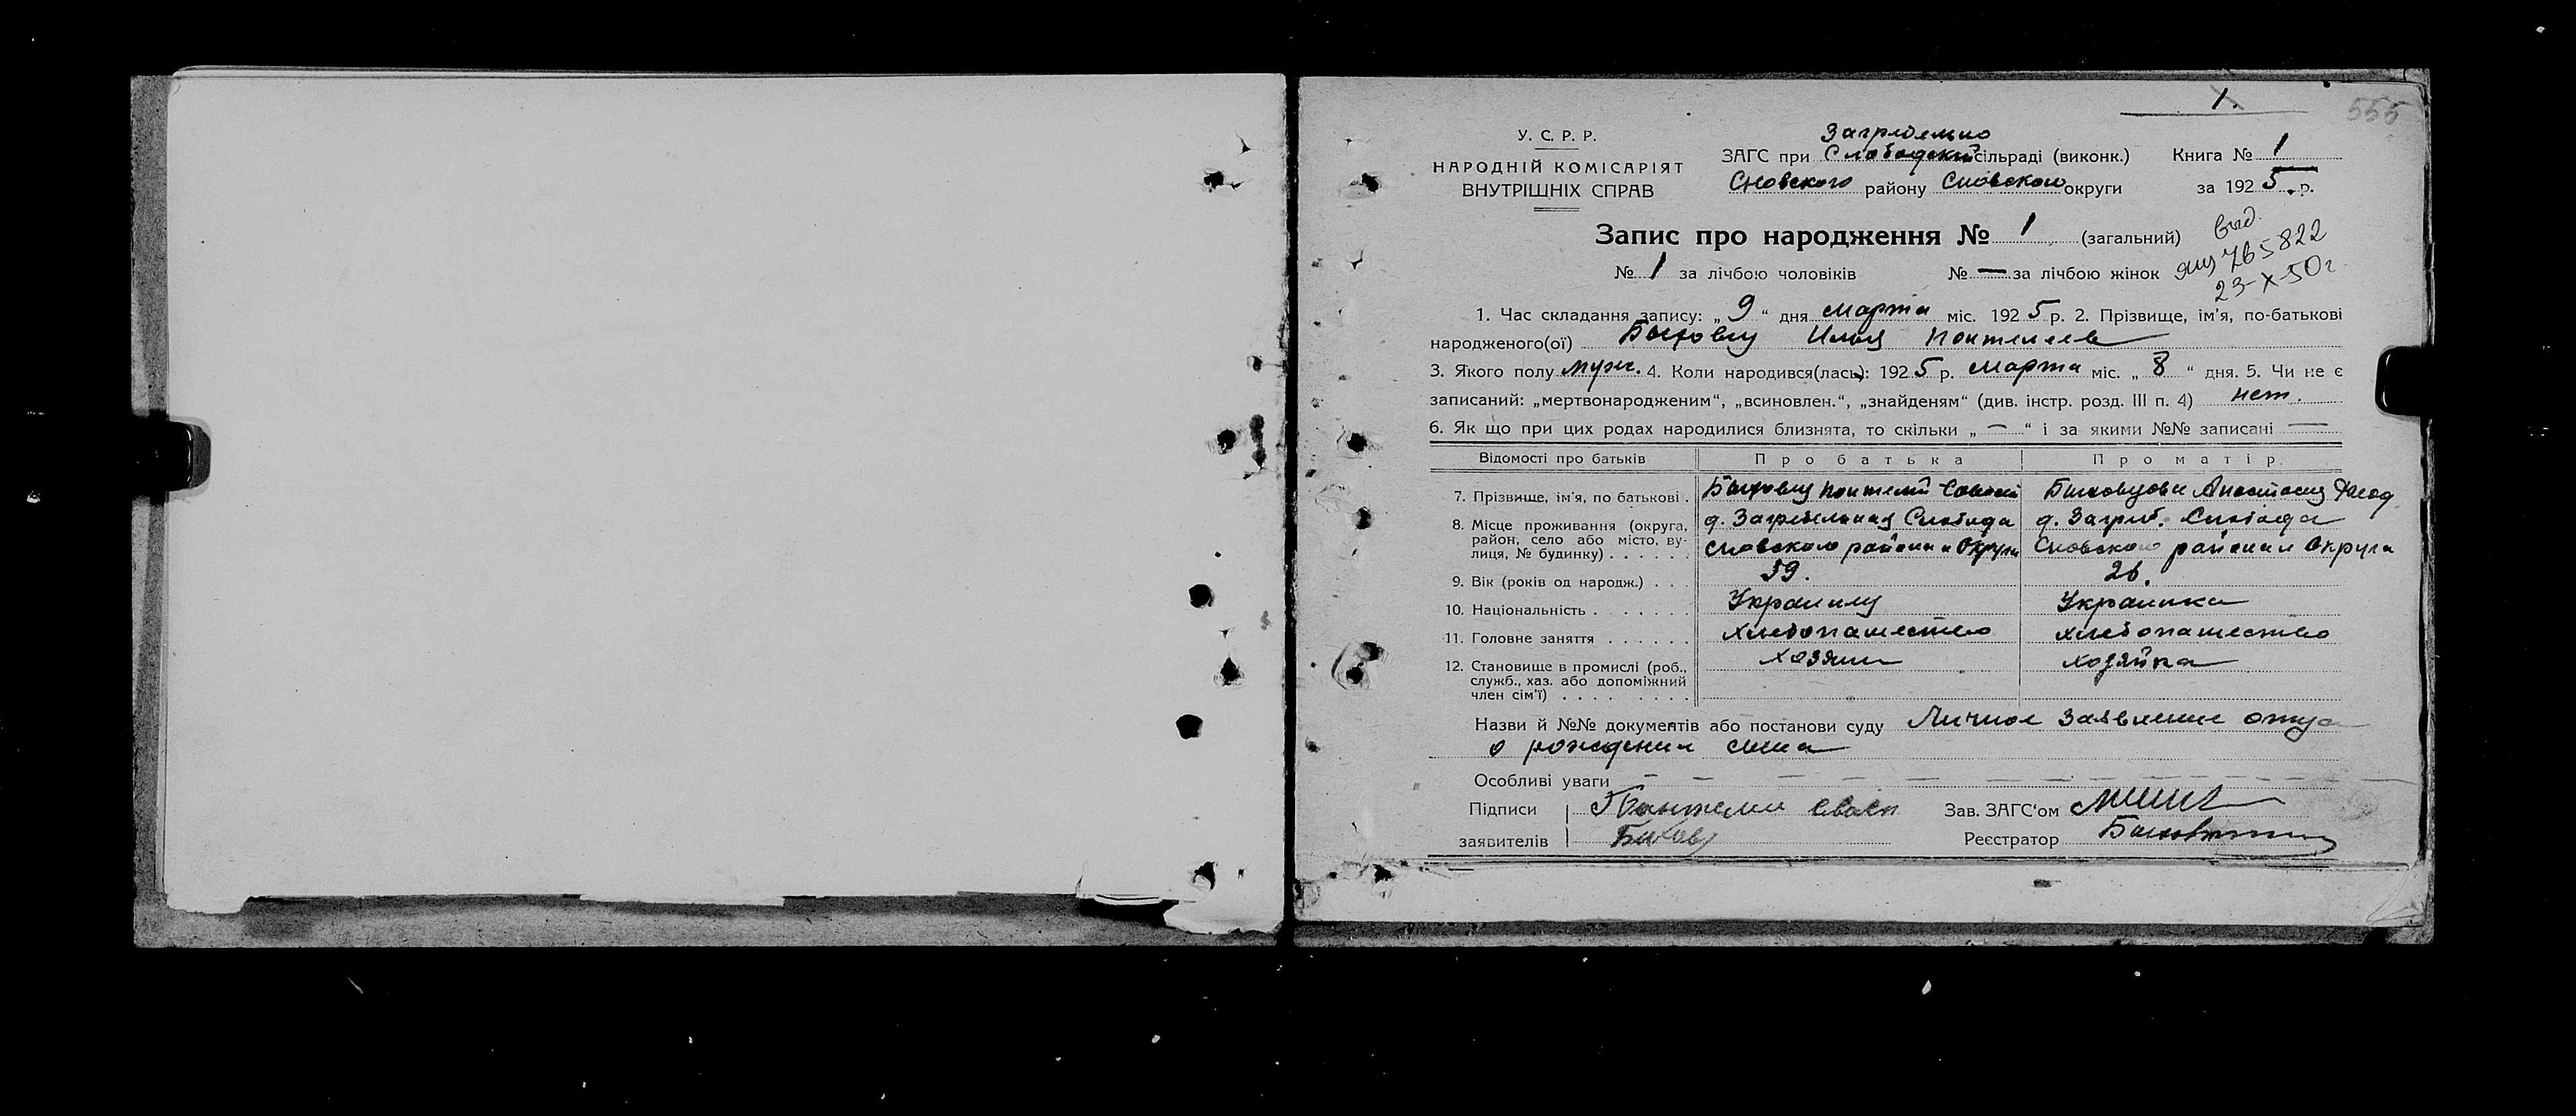 1.
555
У. С. Р. Р.
НАРОДНІЙ КОМІСАРІЯТ
ВНУТРІШНІХ СПРАВ
Загребельно
ЗАГС при Слободской сільраді (виконк.) Книга № 1
Сновского району Сновского округи за 1925 р.
Запис про народження № 1 (загальний)
выд.
765822
23-X-50 г
№ 1 за лічбою чоловіків № — за лічбою жінок
1. Час складання запису: „ 9 “ дня марта міс. 1925 р. 2. Прізвище, ім'я, по-батькові
народженого(ої) Быховец Илья
3. Якого полу муж. 4. Коли народився(лась): 1925 р. марта міс. „ 8 “ дня. 5. Чи не є
записаний: „мертвонародженим“, „всиновлен.“, „знайденям“ (див. інстр. розд. III п. 4) нет.
6. Як що при цих родах народилися близнята, то скільки „ — “ і за якими №№ записані —
Відомості про батьків Про батька Про матір
7. Прізвище, ім'я, по батькові . Быховец Быховцова Анастасия
8. Місце проживання (округа, район, село або місто, ву- лиця, № будинку) . . . . . .
д. Загребельная Слобода д. Загреб. Слобода
Сновского района и Округи Сновского района и Округи
9. Вік (років од народж.) . . . 39. 26.
10. Національність . . . . . . . Украинец Украинка
11. Головне заняття . . . . . . хлебопашество хлебопашество
12. Становище в промислі (роб., служб., хаз. або допоміжний член сім'ї) . . . . . . . . . хозяин хозяйка
Назви й №№ документів або постанови суду Личное заявление отца
о рождении сына
Особливі уваги — — — — —
Підписи
заявителів
Зав. ЗАГС'ом
Реєстратор